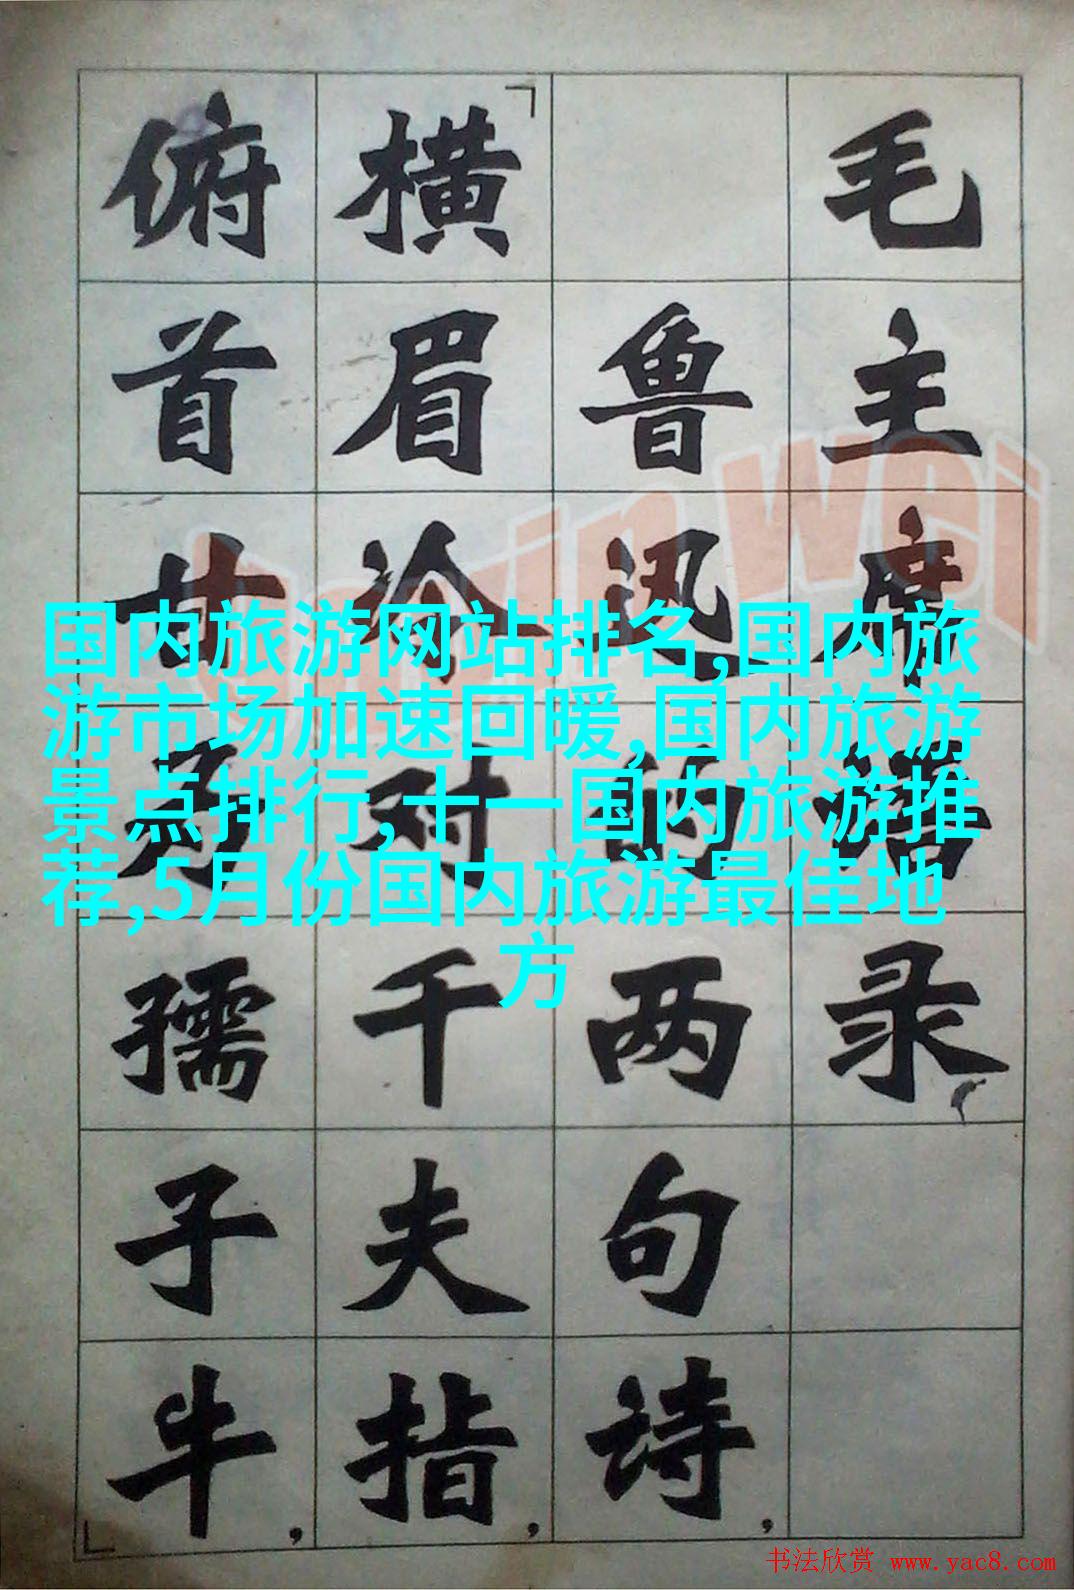 毛主席语录
鲁迅的两句诗,
「横眉冷对千夫指,
俯首甘为孺子牛,」
国内旅游网站排名,国内旅
游市场加速回暖,国内旅游
景点排行,十一国内旅游推
荐,5月份国内旅游最佳地
方
书法欣赏 www.yac8.com